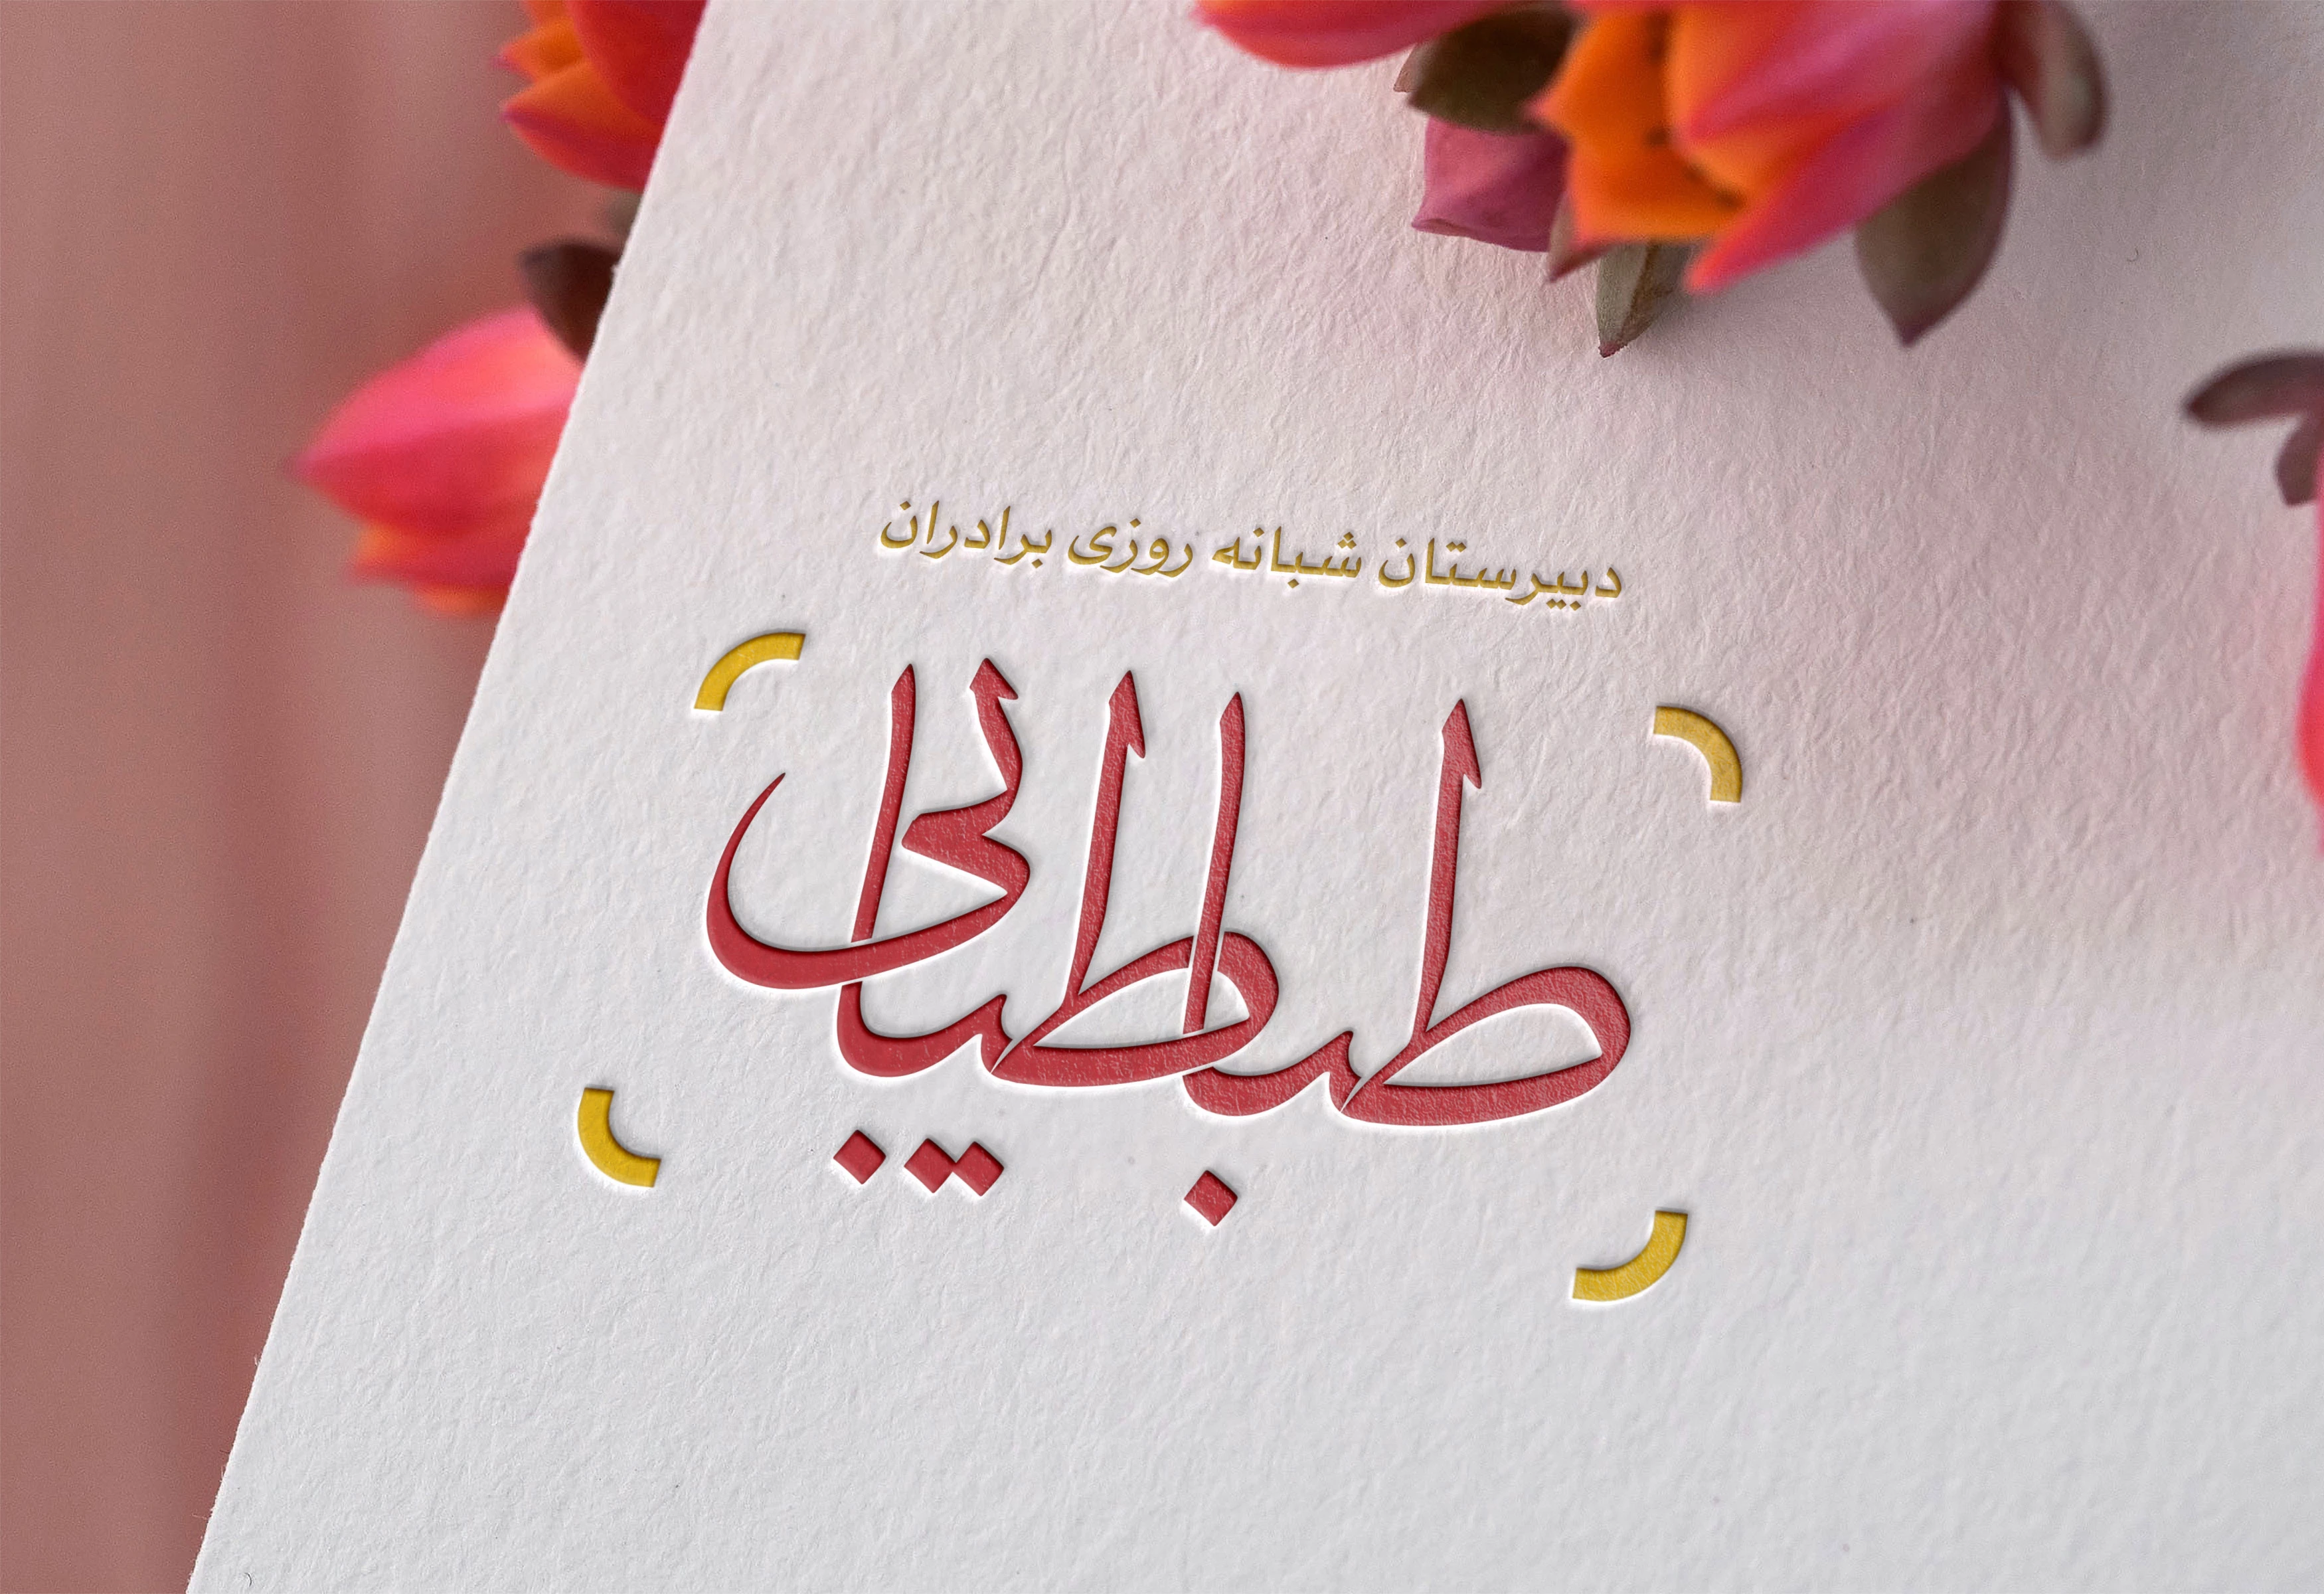 دبیرستان شبانه روزی برادران
طباطبایی